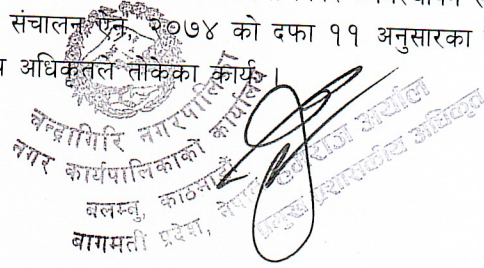 संचालन ऐन, २०७४ को दफा ११ अनुसारका
अधिकृतले तोकेका कार्य ।
चन्द्रागिरि नगरपालिका
नगर कार्यपालिकाको कार्यालय
बलम्बु, काठमाडौं
बागमती प्रदेश, नेपाल
राज अर्याल
प्रमुख प्रशासकीय अधिकृत